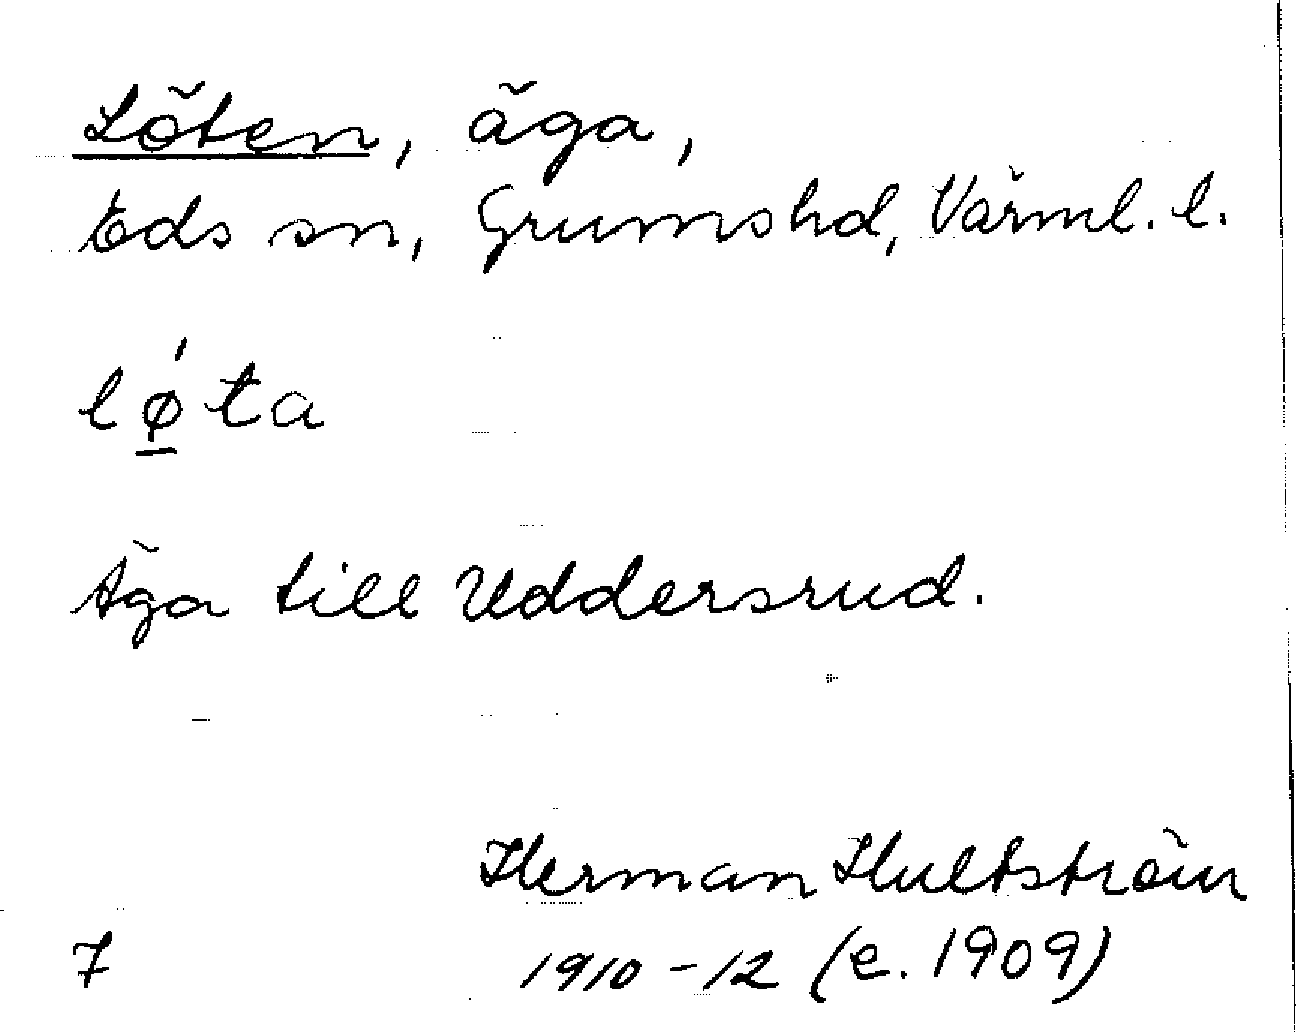 Löten, äga,
Eds sn, Grumshd, Värml. l.
lǿ̲ta
Äga till Uddersrud.
Herman Hultström
7 1910-12 (e. 1909)